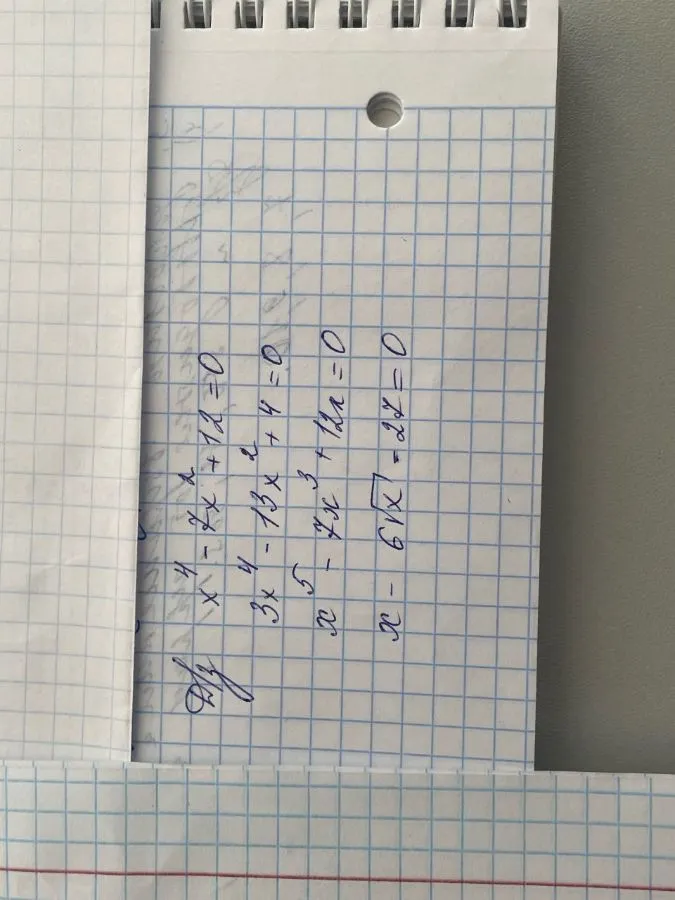 Д/з x⁴ - 7x² + 12 = 0
3x⁴ - 13x² + 4 = 0
x⁵ - 7x³ + 12x = 0
x - 6√x - 27 = 0